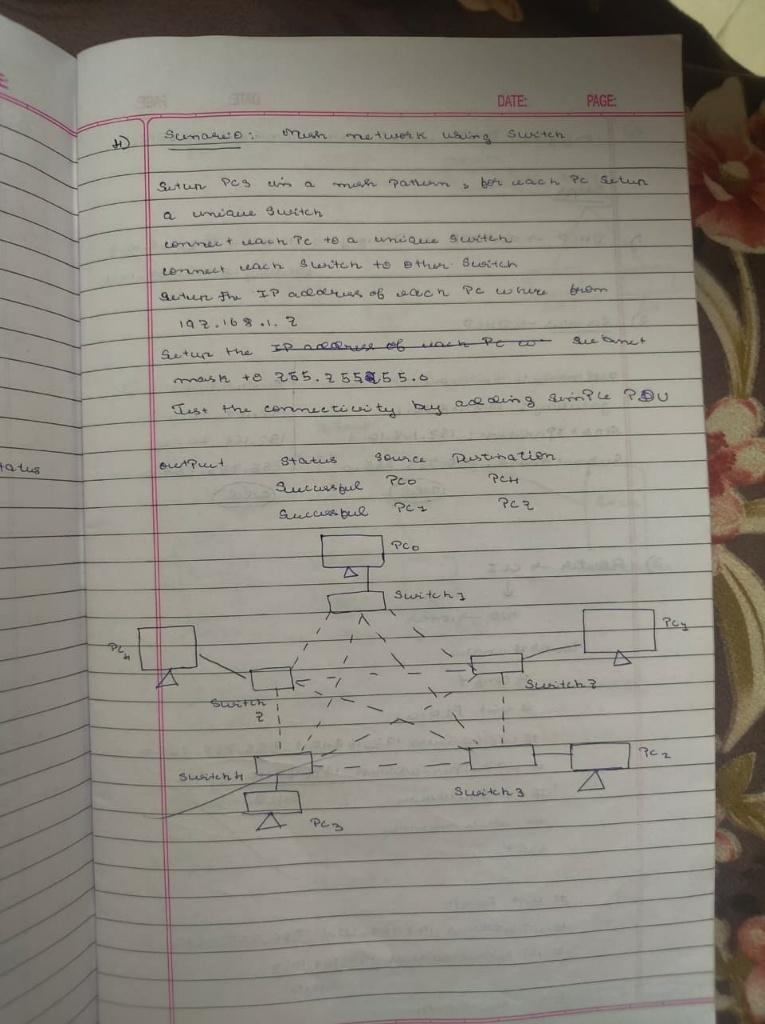 DATE: PAGE:
4) Scenario: Mesh network using Switch
Setup PCs in a mesh pattern, for each PC setup
a unique switch
connect each PC to a unique switch
connect each switch to other switch
Setup the IP address of each PC where from
192.168.1.2
Setup the IP address of each PC w subnet
mask to 255.255.255.0
Test the connectivity by adding simple PDU
output Status Source Destination
Successful PC0 PC4
Successful PC1 PC2
tatus
PC0
Switch 1
PC4
PC1
Switch 2
Switch
2
PC2
Switch 4
Switch 3
PC3